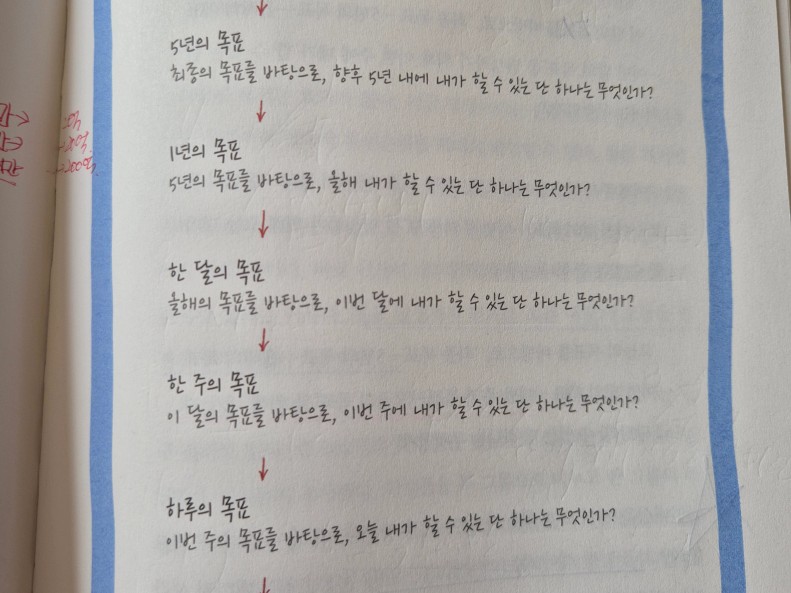 5년의 목표
최종의 목표를 바탕으로, 향후 5년 내에 내가 할 수 있는 단 하나는 무엇인가?
1년의 목표
5년의 목표를 바탕으로, 올해 내가 할 수 있는 단 하나는 무엇인가?
한 달의 목표
올해의 목표를 바탕으로, 이번 달에 내가 할 수 있는 단 하나는 무엇인가?
한 주의 목표
이 달의 목표를 바탕으로, 이번 주에 내가 할 수 있는 단 하나는 무엇인가?
하루의 목표
이번 주의 목표를 바탕으로, 오늘 내가 할 수 있는 단 하나는 무엇인가?